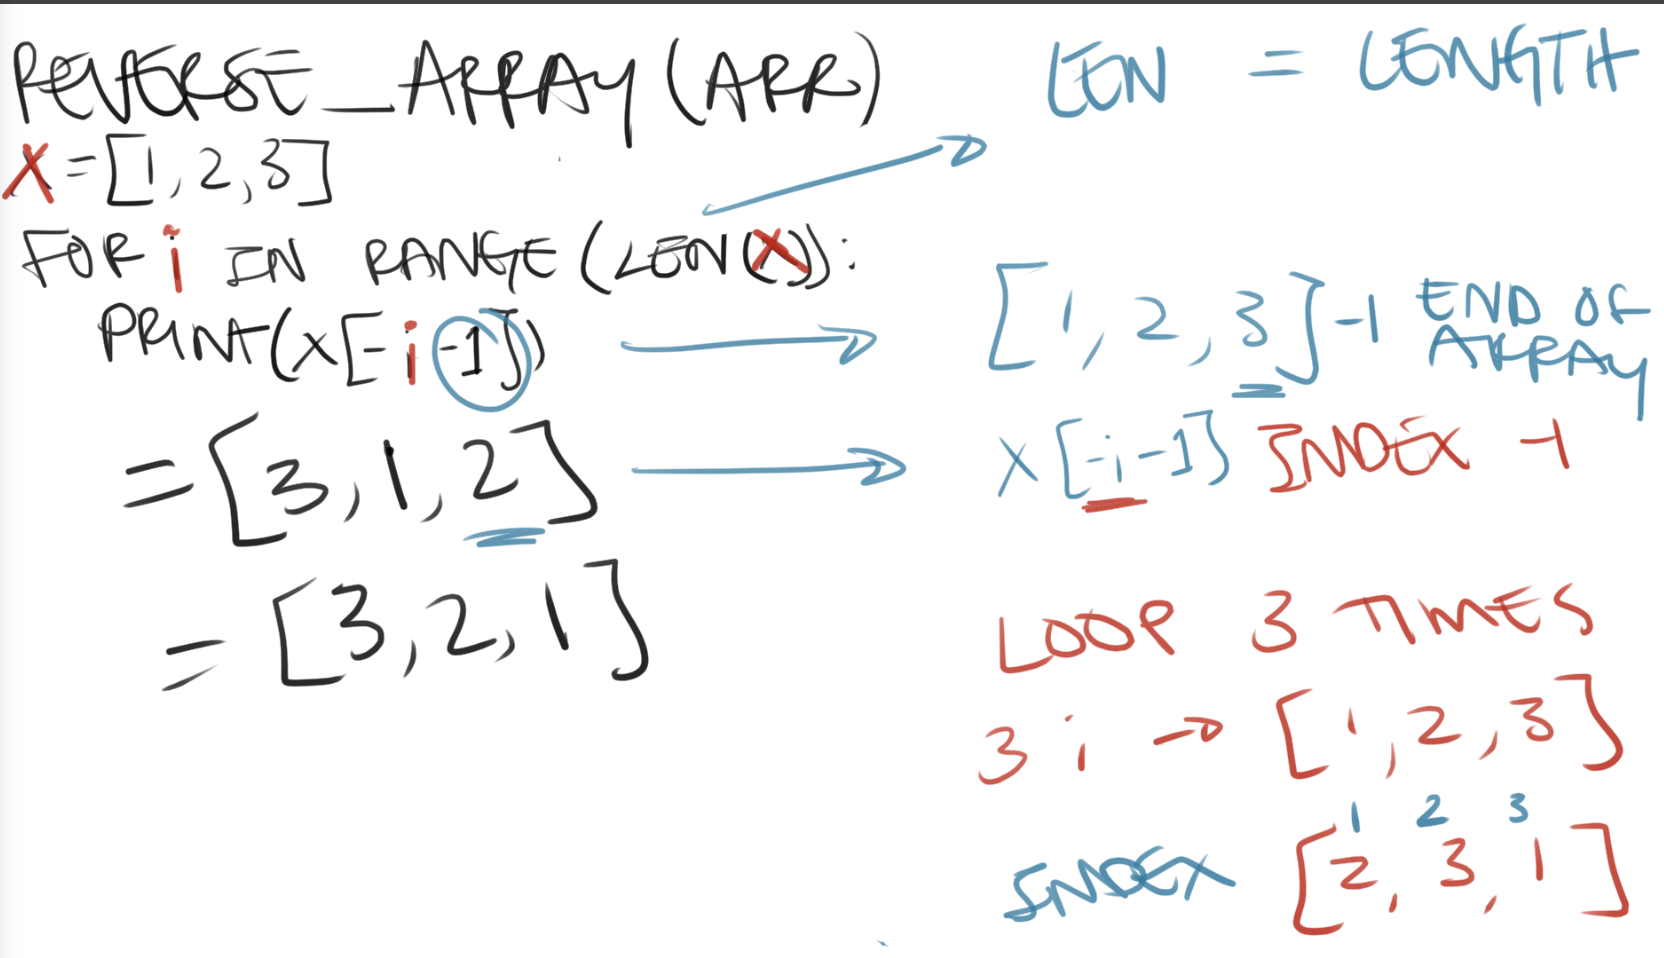 REVERSE_ARRAY(ARR)
X=[1,2,3]
FOR i IN RANGE(LEN(X)):
PRINT(X[-i-1])
=[3,1,2]
=[3,2,1]
LEN = LENGTH
[1,2,3]-1 END OF
ARRAY
X[-i-1] INDEX -1
LOOP 3 TIMES
3 i → [1,2,3]
1 2 3
INDEX [2,3,1]